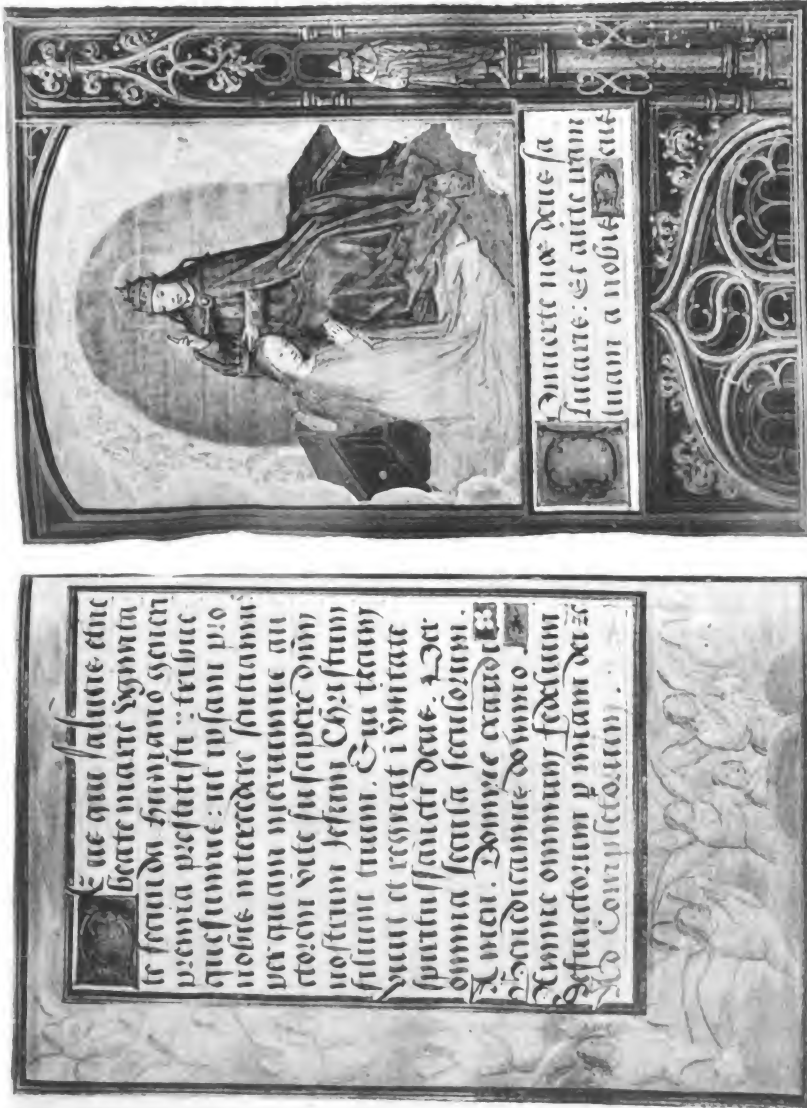 Deus qui salutis eterne
beate marie virginita
te fecunda humano generi
premia prestitisti: tribue
quesumus: ut ipsam pro
nobis intercedere sentiamus
per quam meruimus au
ctorem vite suscipere dnm
nostrum Jesum Christum
filium tuum. Qui tecum
vivit et regnat i vnitate
spiritussancti deus. Per
omnia secula seculorum.
Amen. Domine exaudi
Benedicamus domino
Anime omnium fidelium
defunctorum p miam dei
Ad Completorium.
Conuerte nos deus sa
lutaris: Et auerte iram
tuam a nobis Deus